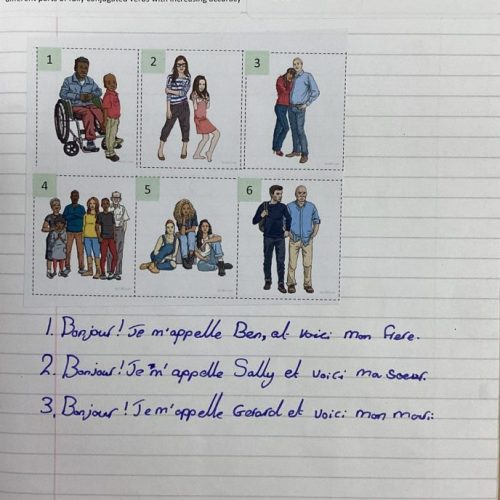 different parts of fully conjugated verbs with increasing accuracy
1 2 3
4 5 6
1. Bonjour! Je m'appelle Ben, et voici mon frere.
2. Bonjour! Je m'appelle Sally et voici ma soeur.
3. Bonjour! Je m'appelle Gerard et voici mon mari.